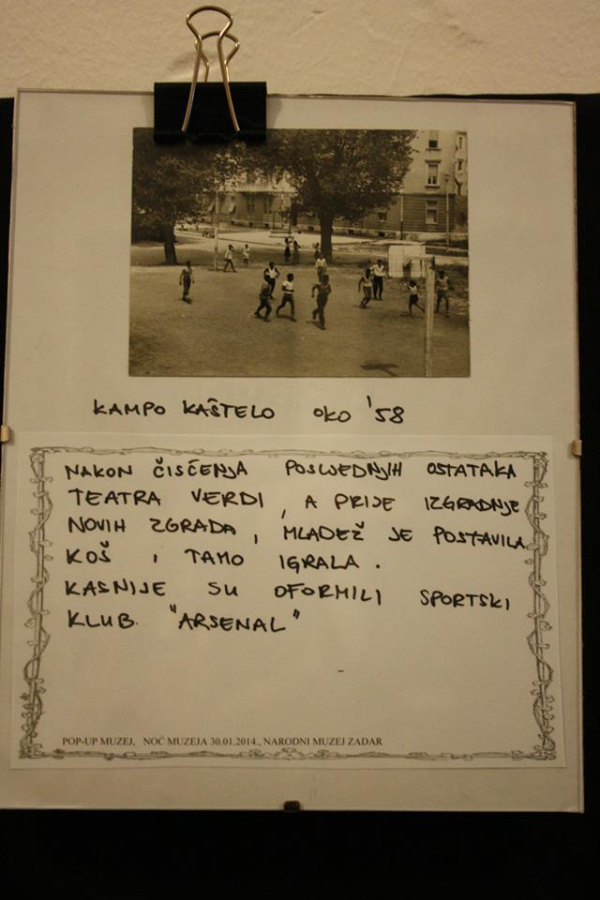 KAMPO KAŠTELO OKO '58
NAKON ČIŠĆENJA POSLJEDNJIH OSTATAKA
TEATRA VERDI, A PRIJE IZGRADNJE
NOVIH ZGRADA, MLADEŽ JE POSTAVILA
KOŠ I TAMO IGRALA.
KASNIJE SU OFORMILI SPORTSKI
KLUB "ARSENAL"
POP-UP MUZEJ, NOĆ MUZEJA 30.01.2014., NARODNI MUZEJ ZADAR